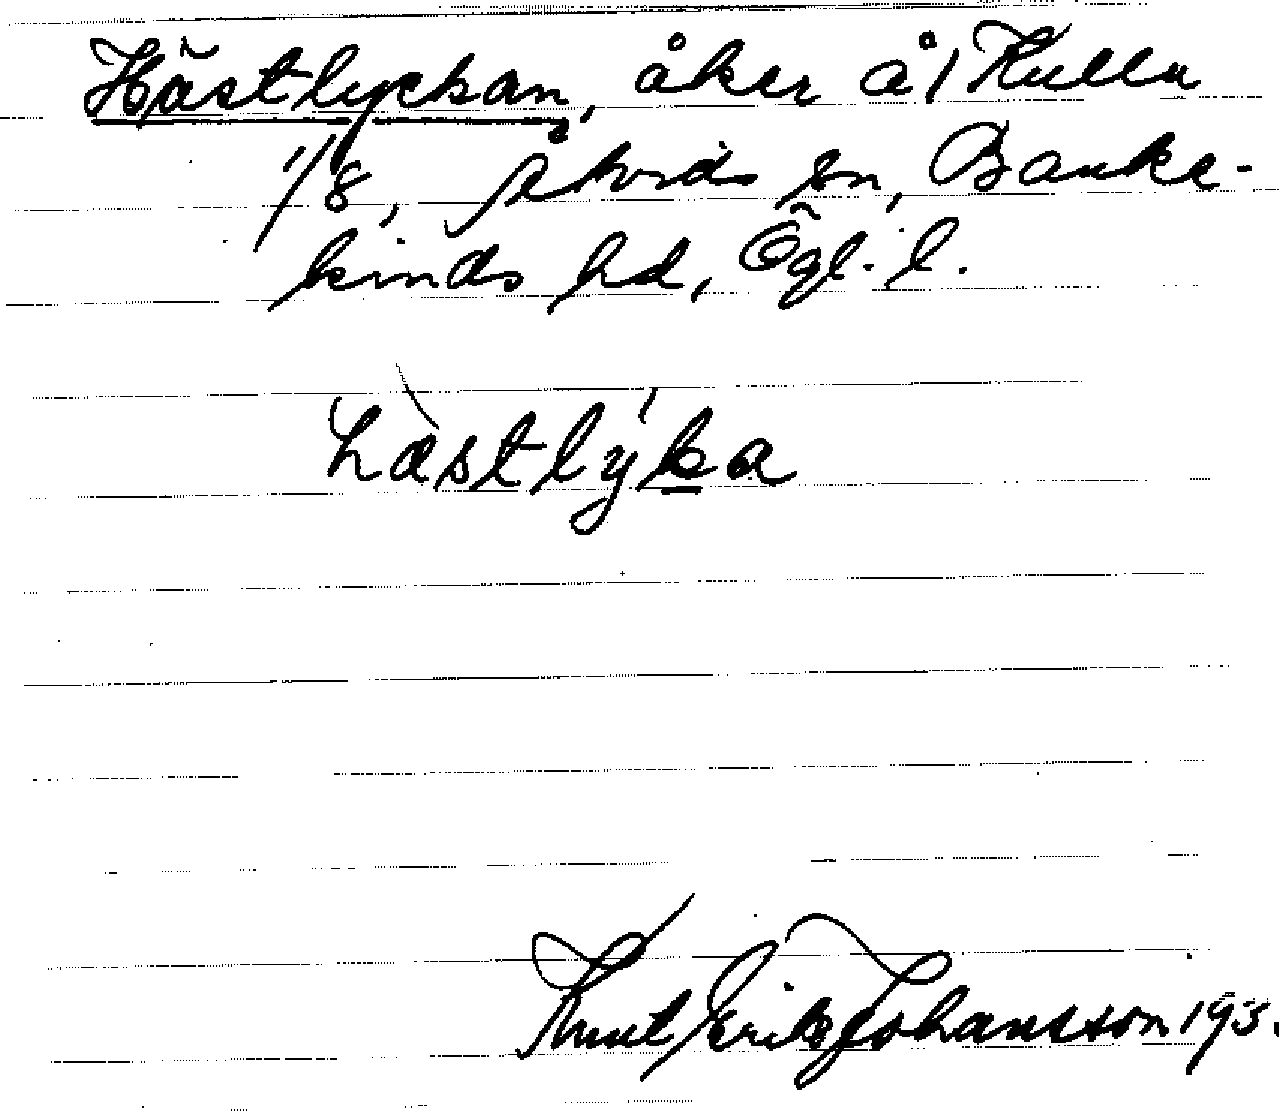 Hästlyckan, åker å 1 Kulla
1/8, Åtvids sn, Banke-
kinds hd, Ögl. l.
hàstlý́ka
Knut Erik Johansson 193.